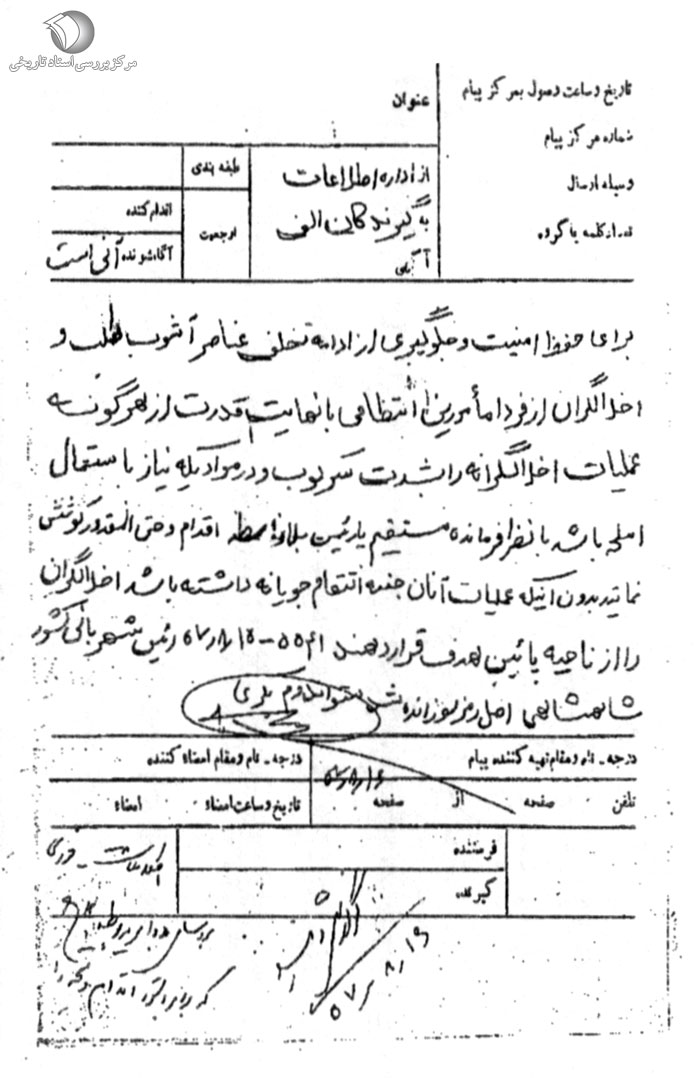 مرکز بررسی اسناد تاریخی
تاریخ و ساعت وصول بمرکز پیام
شماره مرکز پیام
وسیله ارسال
تعداد کلمه یا گروه
عنوان
از اداره اطلاعات
به گیرندگان الف
طبقه بندی
ارجحیت
اقدام کننده
آگاه شونده آنی است
برای حفظ امنیت و جلوگیری از ادامه تخلف عناصر آشوب طلب و
اخلالگران از فردا مأمورین انتظامی با نهایت قدرت از هرگونه
عملیات اخلالگرانه را بشدت سرکوب و در مواردیکه نیاز باستعمال
اسلحه باشد با نظر فرمانده مستقیم یا رئیس بلاواسطه اقدام و حتی المقدور کوشش
نمائید بدون آنیکه عملیات آنان جنبه انتقام جویانه داشته باشد اخلالگران
را از ناحیه پائین هدف قرار دهند ۵۵۰۴۱ - ۵۷/۸/۱۵ رئیس شهربانی کشور
شاهنشاهی اصل رمز سوزانده شد
درجه - نام و مقام تهیه کننده پیام
درجه - نام و مقام امضاء کننده
۵۷/۸/۱۶
تلفن صفحه از صفحه
تاریخ و ساعت امضاء امضاء
فرستنده
گیرنده
۵۷/۸/۱۶